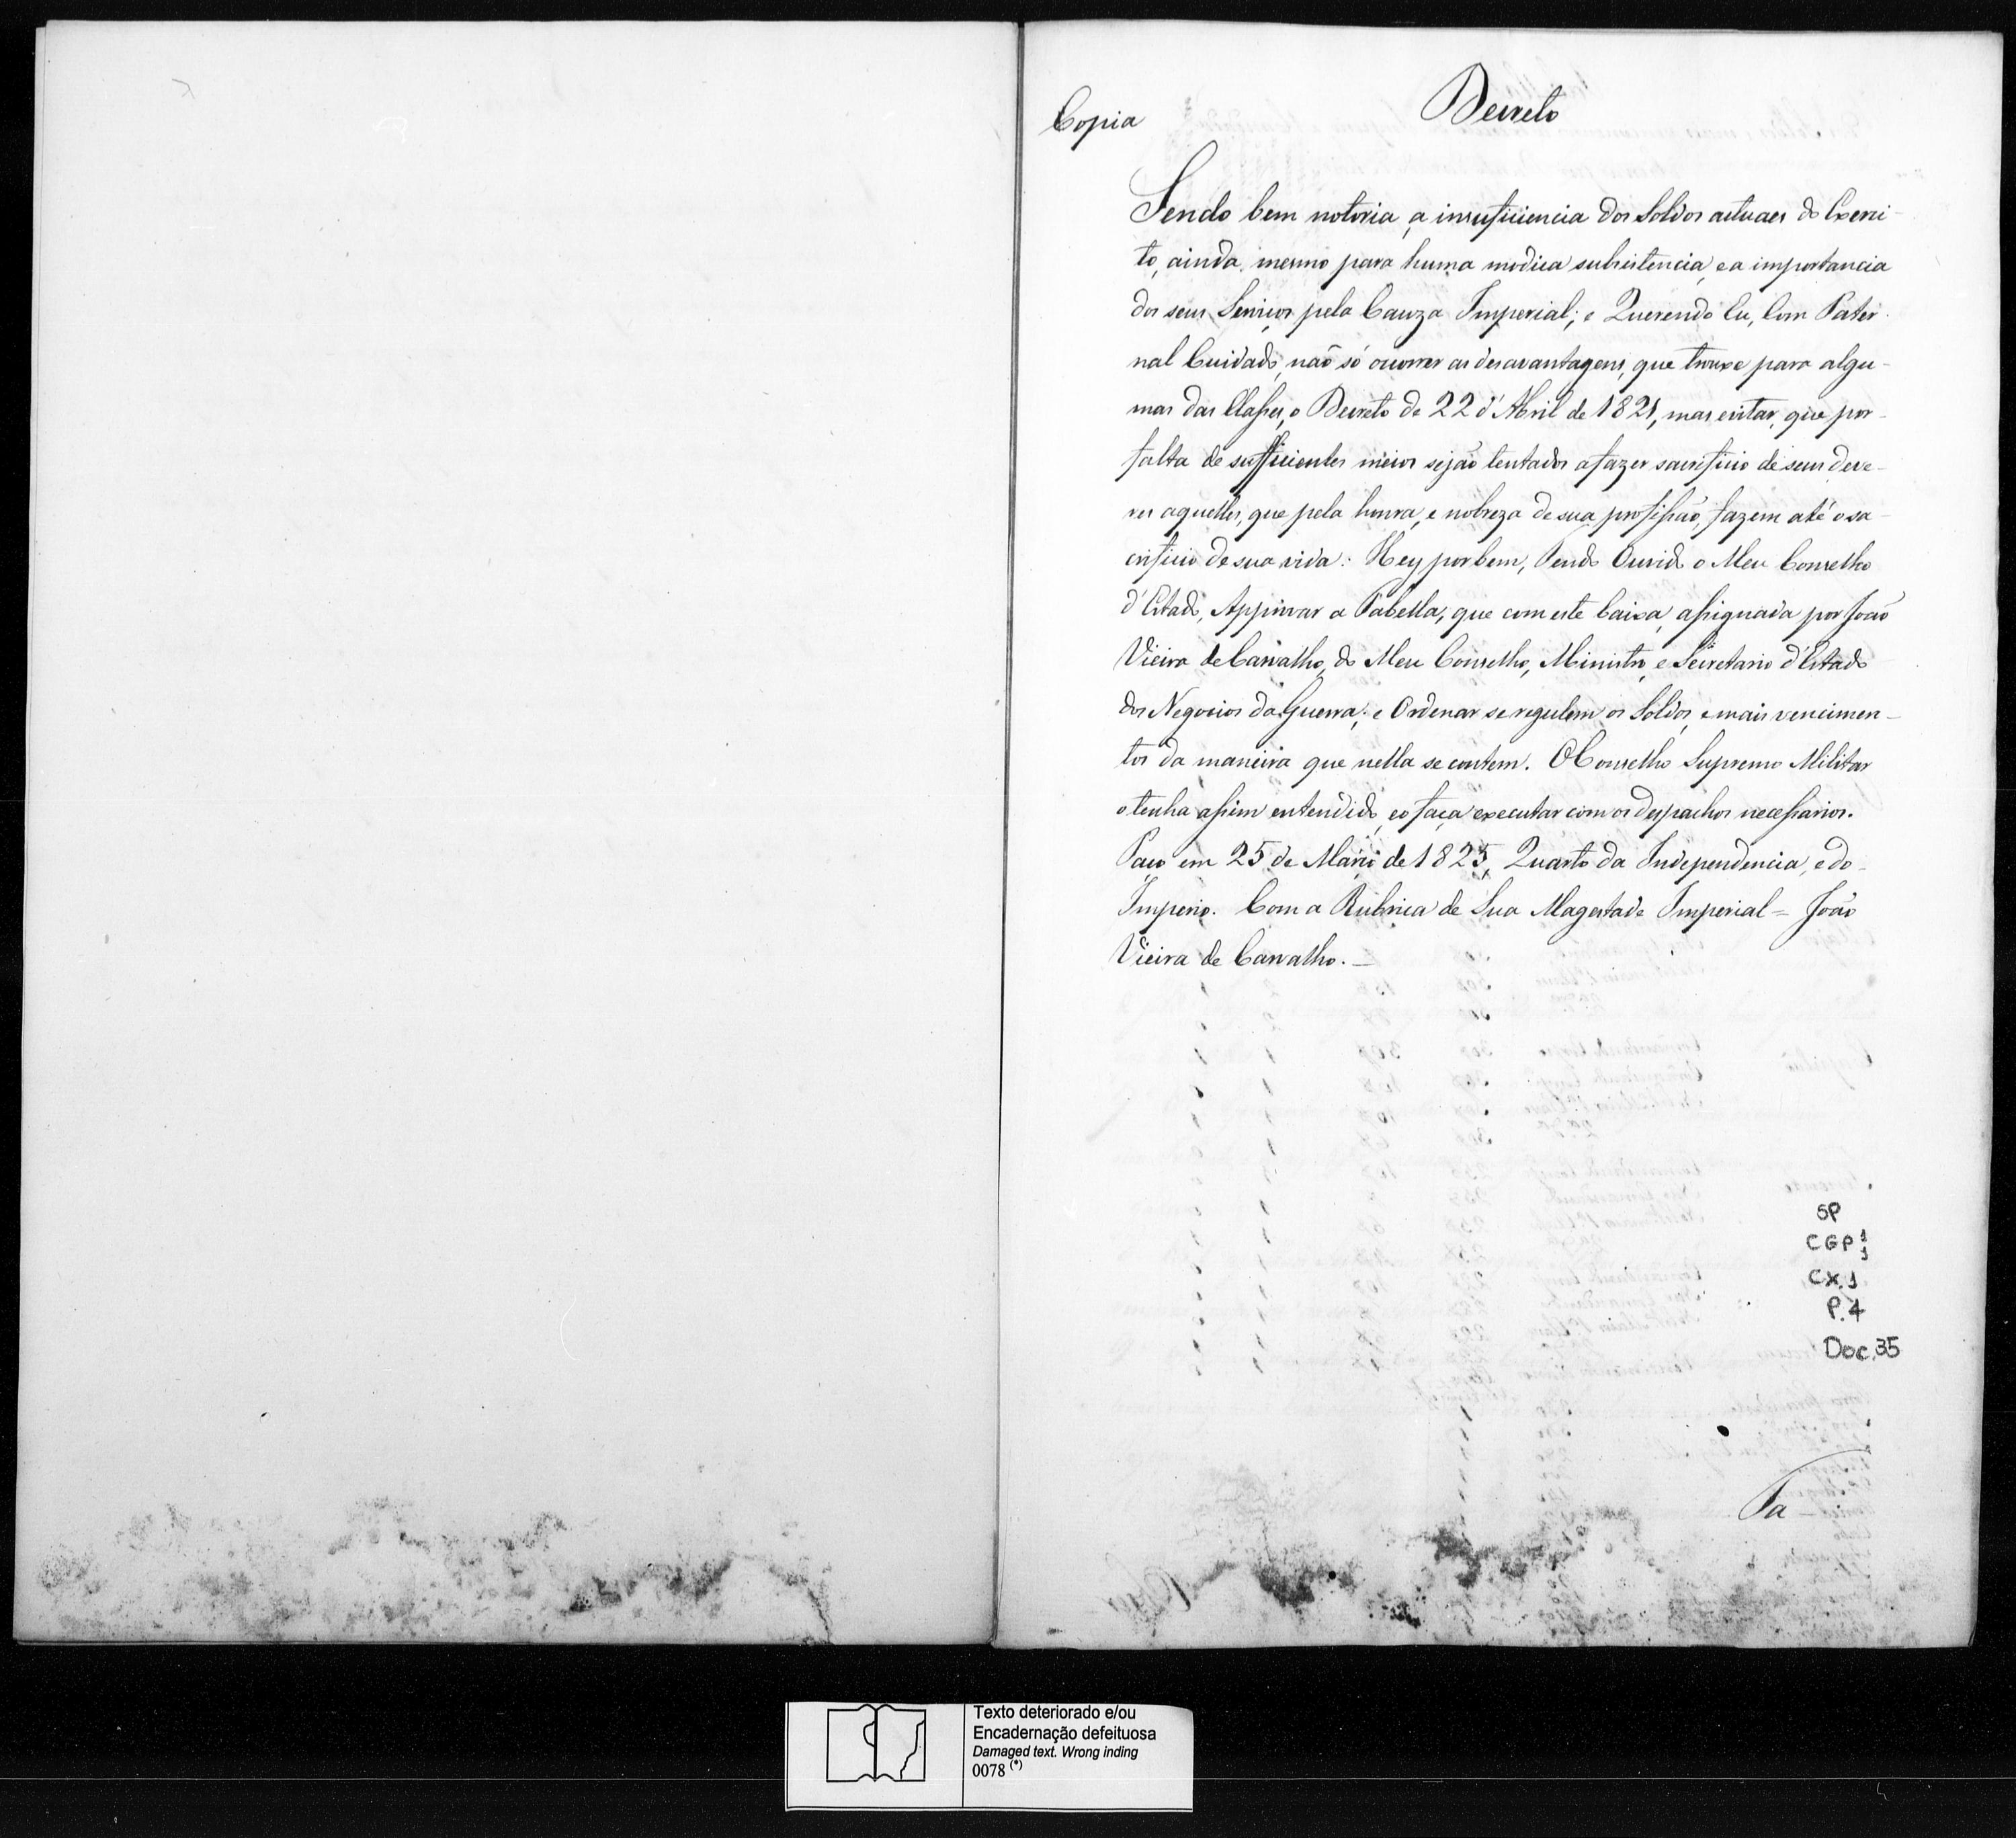 Copia
Decreto
Sendo bem notoria, a insuficiencia dos Soldos actuaes do Exerci-
to, ainda mesmo para huma modica subsistencia, e a importancia
dos seus Serviços pela Cauza Imperial; e Querendo Eu, Com Pater-
nal Cuidado, não só ocorrer as desavantagens, que trouxe para algu-
mas das Classes, o Decreto de 22 d'Abril de 1821, mas evitar, que por
falta de sufficientes meios sejão tentados a fazer sacrificio de seus deve-
res aquelles, que pela honra, e nobreza de sua profissão, fazem até o sa-
crificio de sua vida: Hey por bem, Tendo Ouvido o Meu Conselho
d'Estado, Approvar a Tabella, que com este baixa, assignada por João
Vieira de Carvalho, do Meu Conselho, Ministro, e Secretario d'Estado
dos Negocios da Guerra; e Ordenar se regulem os Soldos, e mais vencimen-
tos da maneira que nella se contem. O Conselho Supremo Militar
o tenha assim entendido, e o faça executar com os despachos necessarios.
Paço em 25 de Março de 1825, Quarto da Independencia, e do
Imperio. Com a Rubrica de Sua Magestade Imperial = João
Vieira de Carvalho. —
SP
CGP 1
1
CX. 1
P. 4
Doc. 35
Ta-
Texto deteriorado e/ou
Encadernação defeituosa
Damaged text. Wrong inding
0078 (*)